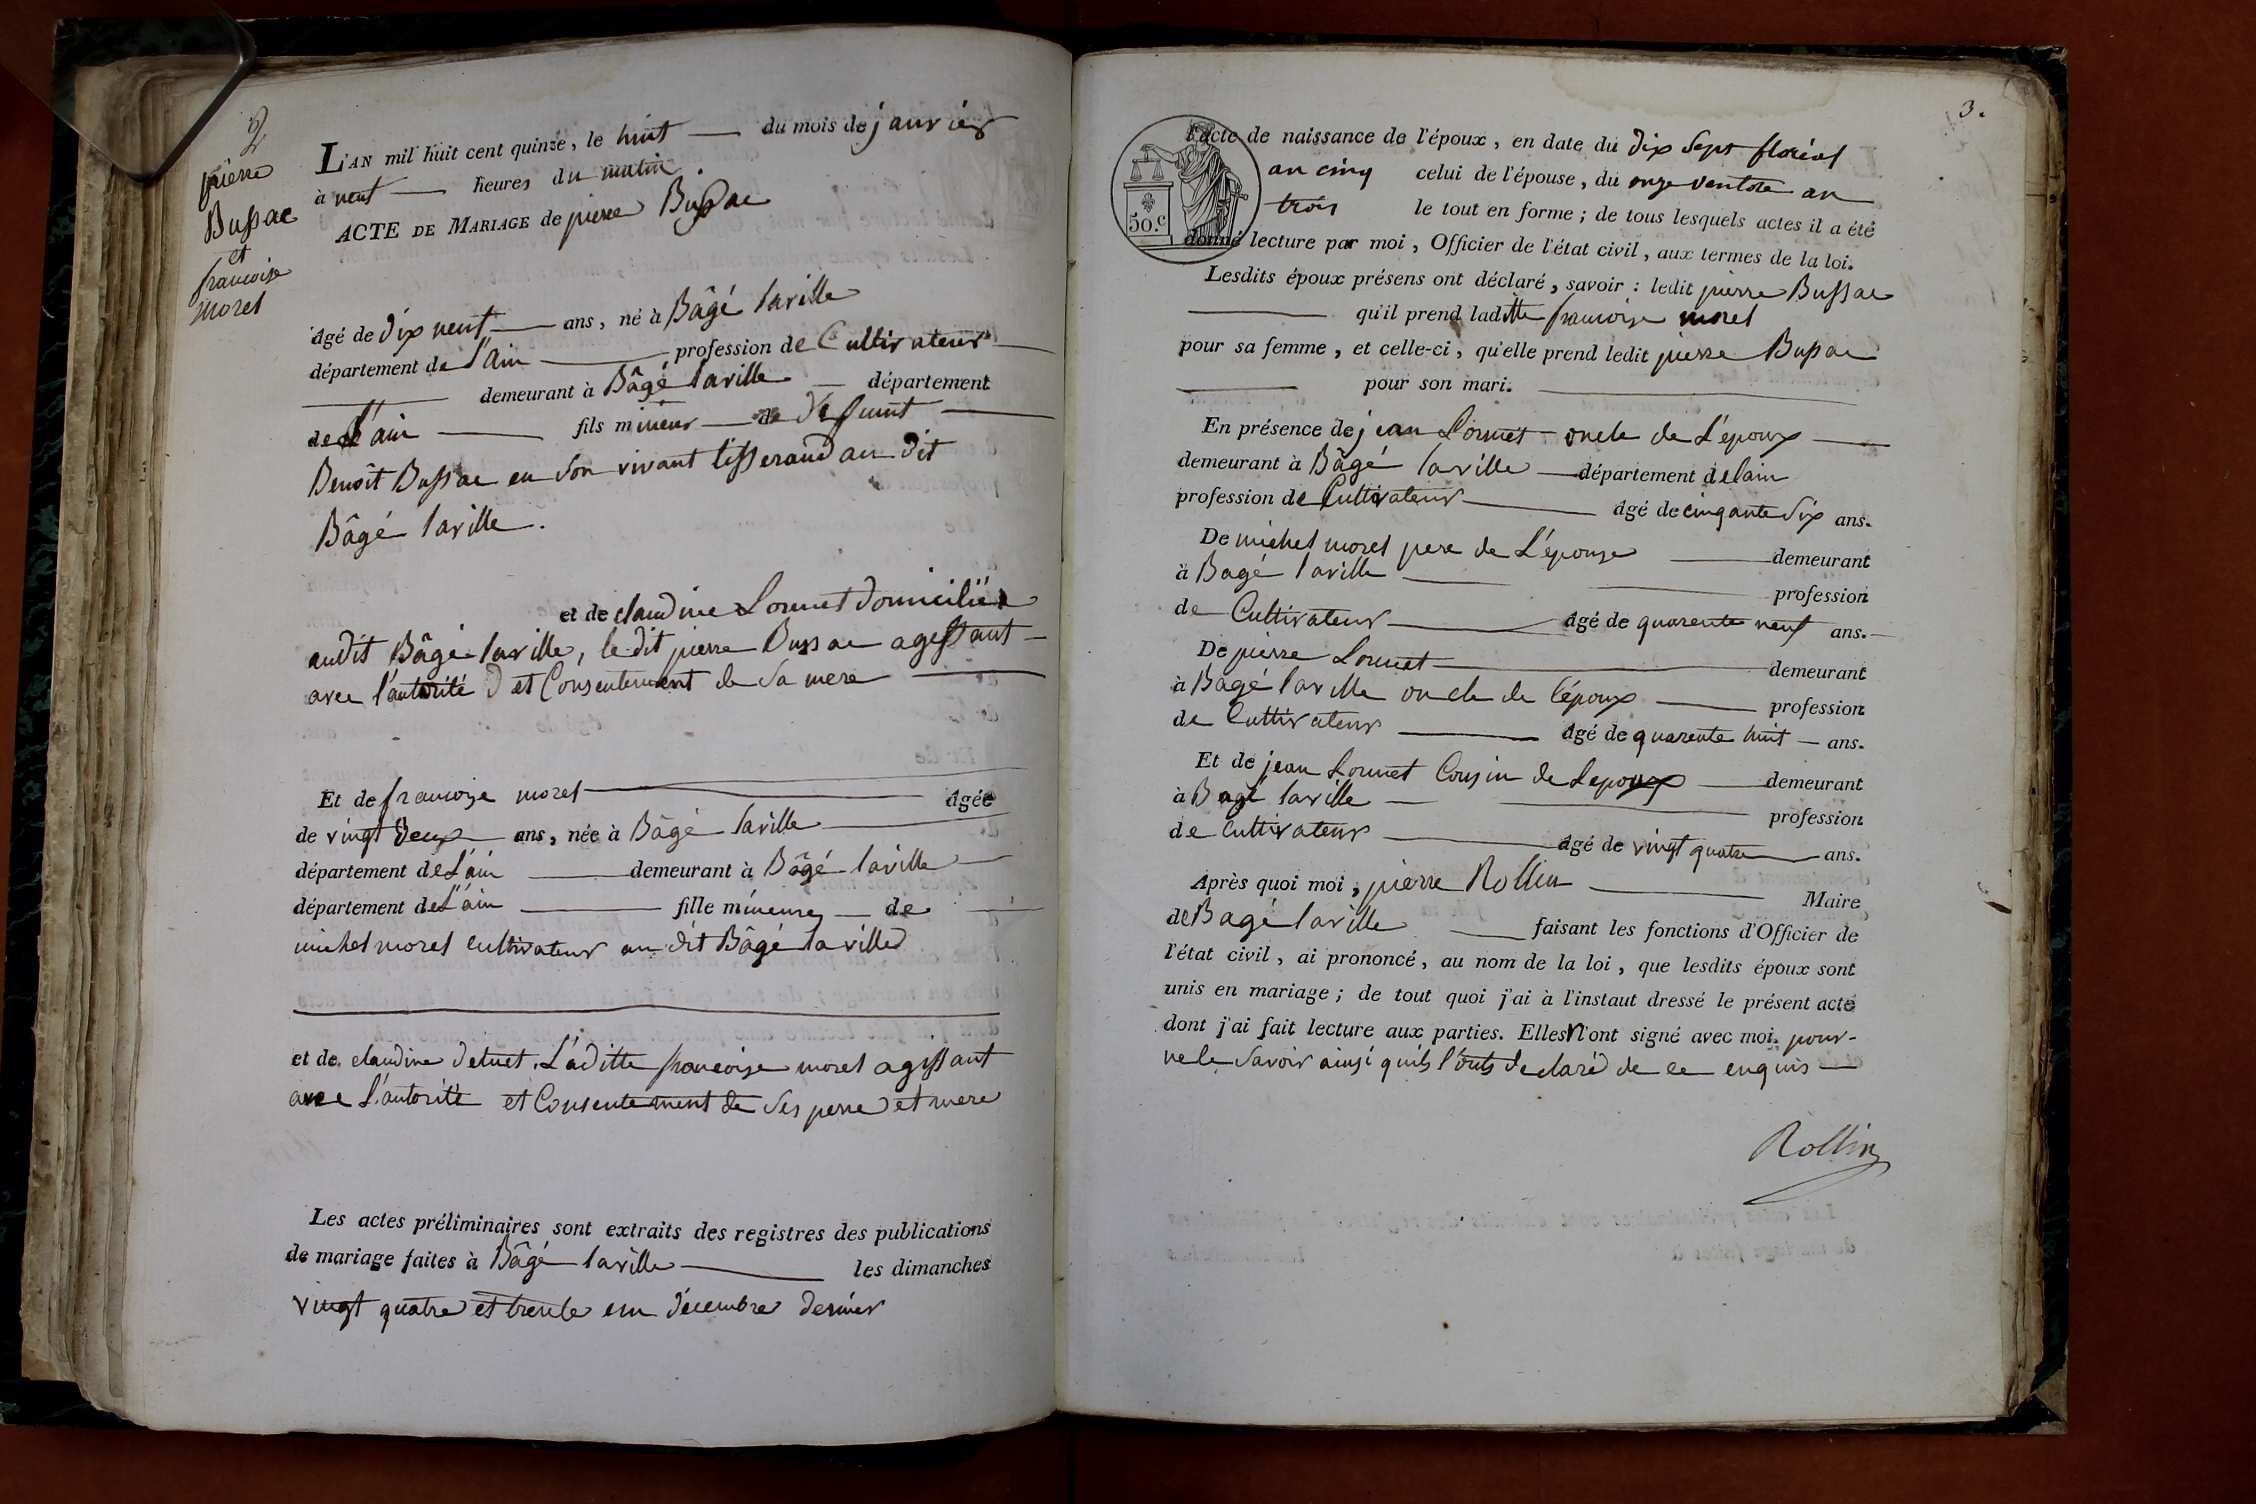 2
pierre
Bussac
et
francoise
morel
L'AN mil huit cent quinze, le huit du mois de janvier
à neuf heures du matin.
ACTE DE MARIAGE de pierre Bussac
âgé de dix neuf ans, né à Bâgé laville
département de l'ain profession de Cultivateur
demeurant à Bâgé laville département
de l'ain fils mineur de defunt
Benoît Bussac en son vivant tisserand au dit
Bâgé laville.
et de claudine Lonnet domiciliée
audit Bâgé laville, le dit pierre Bussac agissant
avec l'autorité et Consentement de sa mere
Et de francoise morel âgée
de vingt deux ans, née à Bâgé laville
département de L'ain demeurant à Bâgé laville
département de L'ain fille mineure de
michel morel cultivateur au dit Bâgé laville
et de claudine . Laditte francoise morel agissant
avec L'autorité et Consentement de ses pere et mere
Les actes préliminaires sont extraits des registres des publications
de mariage faites à Bâgé laville les dimanches
vingt quatre et trente un décembre dernier
3.
50.c
l'acte de naissance de l'époux, en date du dix sept floréal
an cinq celui de l'épouse, du onze ventose an
trois le tout en forme ; de tous lesquels actes il a été
donné lecture par moi, Officier de l'état civil, aux termes de la loi.
Lesdits époux présens ont déclaré, savoir : ledit pierre Bussac
qu'il prend laditte francoise morel
pour sa femme, et celle-ci, qu'elle prend ledit pierre Bussac
pour son mari.
En présence de jean Lonnet oncle de L'epoux
demeurant à Bâgé laville département de lain
profession de Cultivateur âgé de cinqante six ans.
De michel morel pere de L'épouse demeurant
à Bagé laville profession
de Cultivateur âgé de quarente neuf ans.
De pierre Lonnet demeurant
à Bagé laville oncle de l'époux profession
de Cultivateur âgé de quarente huit ans.
Et de jean Lonnet Cousin de Lepoux demeurant
à Bagé laville profession
de cultivateur âgé de vingt quatre ans.
Après quoi moi, pierre Rollin Maire
de Bagé laville faisant les fonctions d'Officier de
l'état civil, ai prononcé, au nom de la loi, que lesdits époux sont
unis en mariage ; de tout quoi j'ai à l'instaut dressé le présent acte
dont j'ai fait lecture aux parties. Elles n'ont signé avec moi. pour
ne le savoir ainsi quils l'onts declaré de ce enquis
Rollin